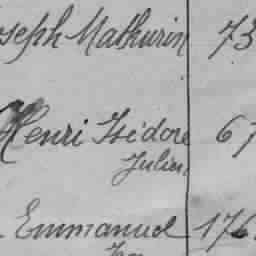 oseph Mathurin 73
Henri Isidore 67
Julien
Emmanuel 176